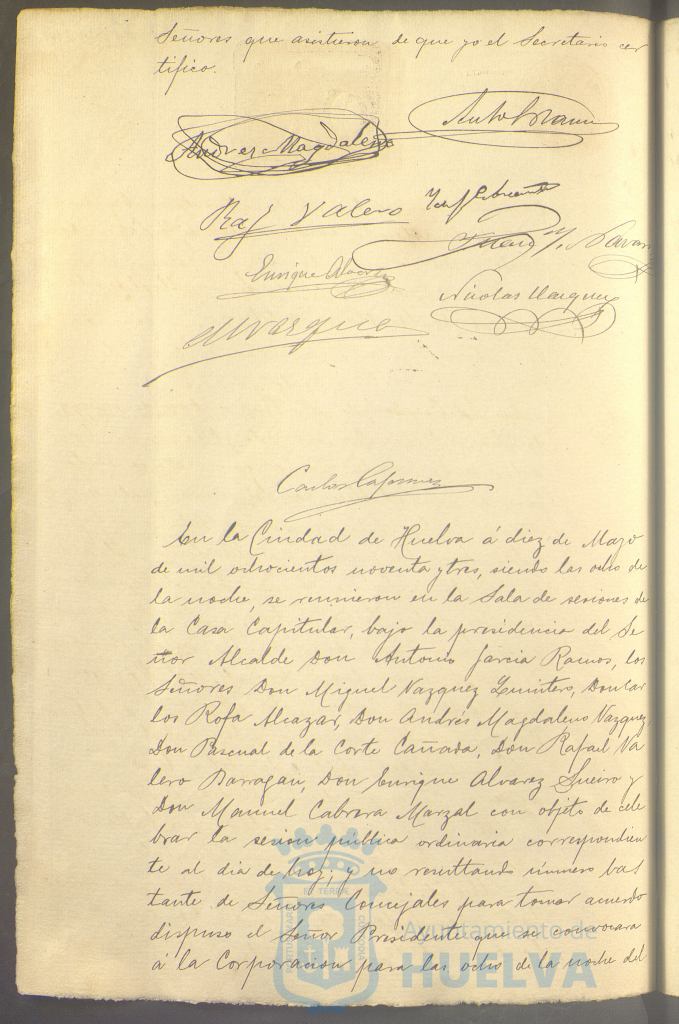 Señores que asistieron de que yo el Secretario cer
tifico.
Andres Magdaleno
Raf Valero
Enrique Alvarez
Nicolas Vazquez
M Vazquez
Carlos
En la Ciudad de Huelva á diez de Mayo
de mil ochocientos noventa y tres, siendo las ocho de
la noche, se reunieron en la Sala de sesiones de
la Casa Capitular, bajo la presidencia del Se
ñor Alcalde Don Antonio Garcia Ramos, los
Señores Don Miguel Vazquez Quintero, Don Car
los Rofa Alcazar, Don Andrés Magdaleno Vazquez
Don Pascual de la Corte Cañada, Don Rafael Va
lero Barragan, Don Enrique Alvarez Sueiro y
Don Manuel Cabrera Marzal con objeto de cele
brar la sesion publica ordinaria correspondien
te al dia de hoy; y no resultando número bas
tante de Señores Concejales para tomar acuerdo
dispuso el Señor Presidente que se convocara
á la Corporacion para las ocho de la noche del
Ayuntamiento de
HUELVA